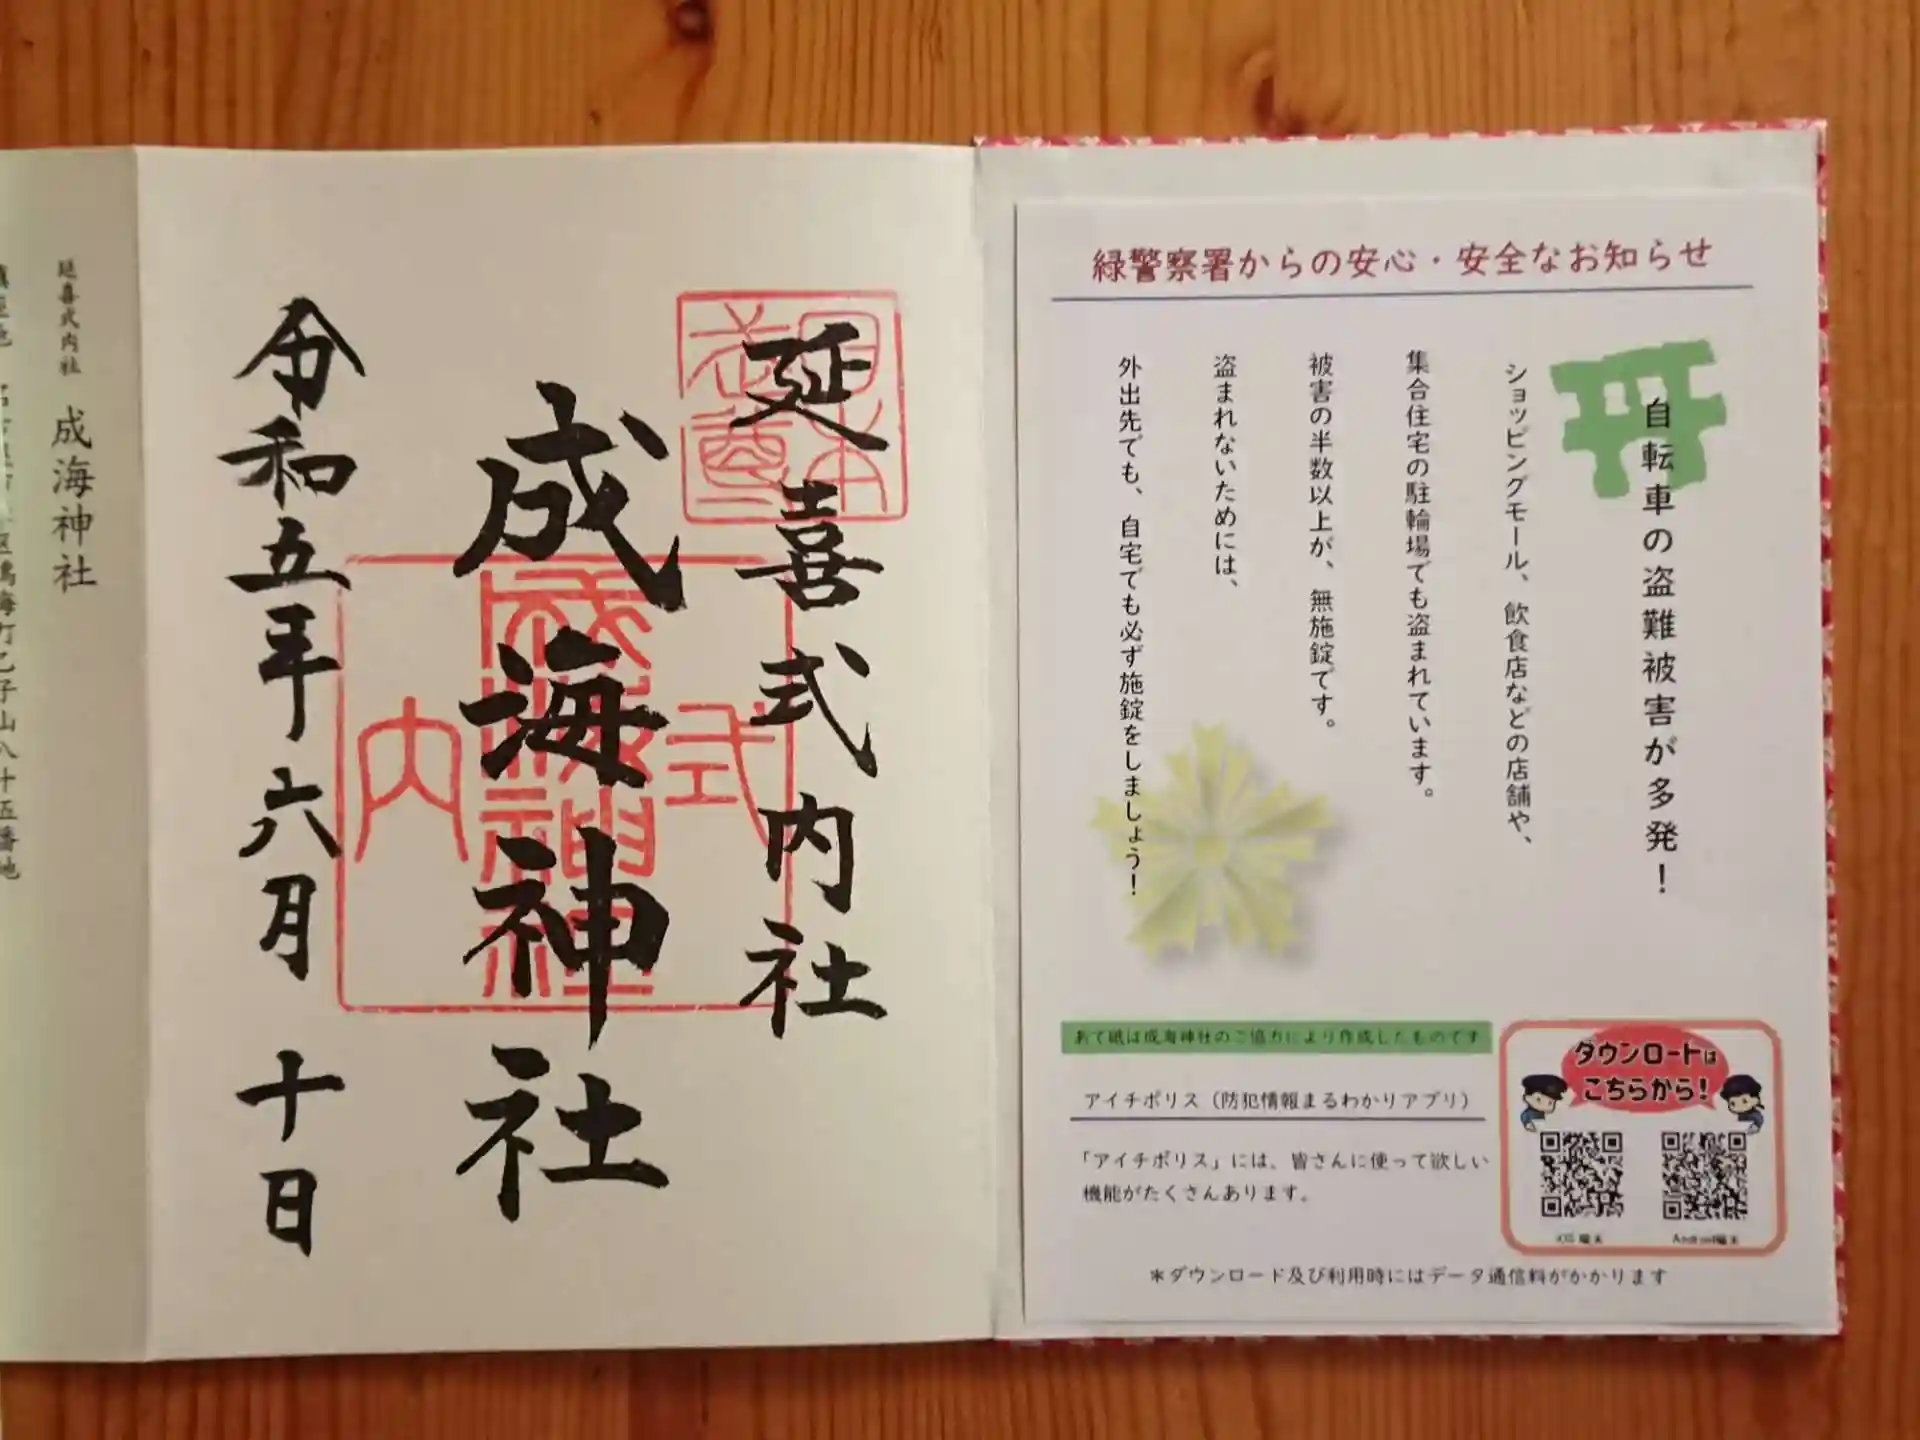 緑警察署からの安心・安全なお知らせ
自転車の盗難被害が多発！
ショッピングモール、飲食店などの店舗や、
集合住宅の駐輪場でも盗まれています。
被害の半数以上が、無施錠です。
盗まれないためには、
外出先でも、自宅でも必ず施錠をしましょう！
あて紙は成海神社のご協力により作成したものです
アイチポリス（防犯情報まるわかりアプリ）
「アイチポリス」には、皆さんに使って欲しい
機能がたくさんあります。
ダウンロードは
こちらから！
iOS端末
Android端末
＊ダウンロード及び利用時にはデータ通信料がかかります
延喜式内社
成海神社
令和五年六月十日
式
成海神社
内
延喜式内社 成海神社
鳴海町乙子山八十五番地